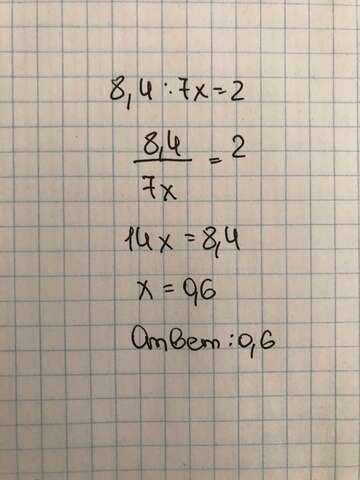 8,4 : 7x = 2
8,4
7x
= 2
14x = 8,4
x = 0,6
Ответ: 0,6